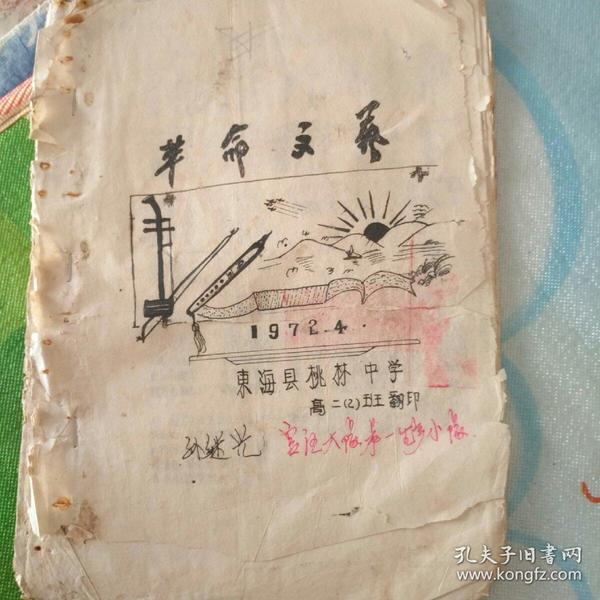 革命文艺
1972.4.
東海县桃林中学
高二(2)班翻印
孙继光 宫汪大队第一生产小队
孔夫子旧书网
www.kongfz.com